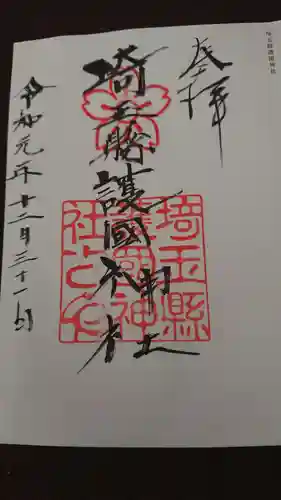 埼玉縣護國神社
奉拝
埼玉縣護國神社
埼玉縣護國神社之印
令和元年十二月三十一日